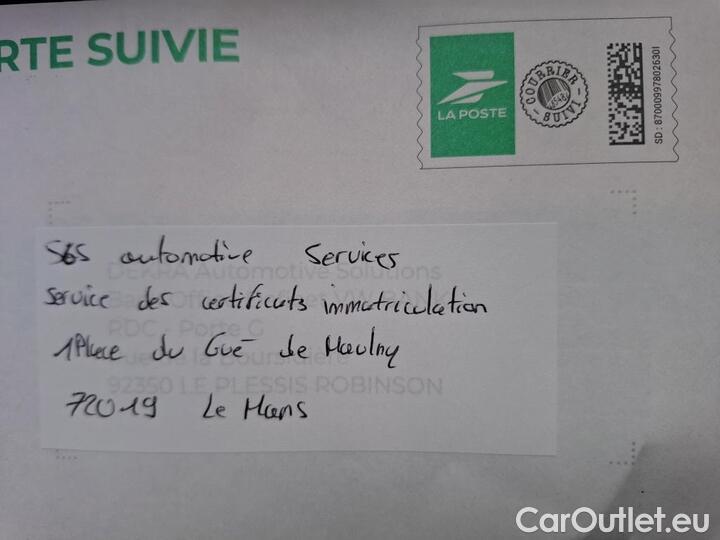 RTE SUIVIE
LA POSTE
COURRIER SUIVI
SD : 87000997802630I
S6S automotive Services
DEKRA Automotive Solutions
Service des certificats immatriculation
RDC - Porte G
1 Place du Gué de Maulny
92350 LE PLESSIS ROBINSON
72019 Le Mans
CarOutlet.eu